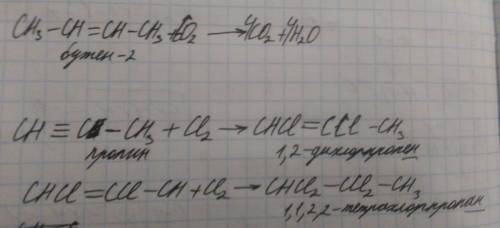 CH₃-CH=CH-CH₃+6O₂→4CO₂+4H₂O
бутен-2
CH≡C-CH₃+Cl₂→CHCl=CCl-CH₃
пропин 1,2-дихлорпропен
CHCl=CCl-CH+Cl₂→CHCl₂-CCl₂-CH₃
1,1,2,2-тетрахлорпропан